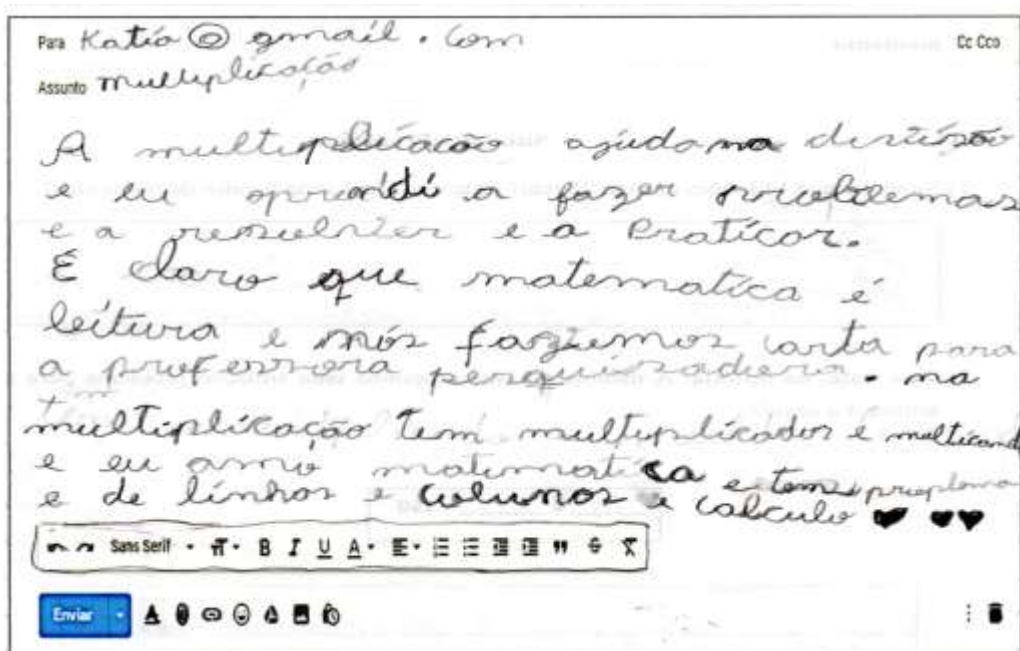 Para Katia@gmail.com Cc Cco
Assunto multiplicação
A multiplicacão ajuda na divizão
e eu aprendi a fazer problemas
e a resolver e a Praticar.
É claro que matematica é
leitura e nós fazemos carta para
a professora pesquizadora. na
multiplicação tem multiplicador e multicand
e eu amo matematica e tem
e de linhas e colunas e calculo
Sans Serif B I U A
Enviar